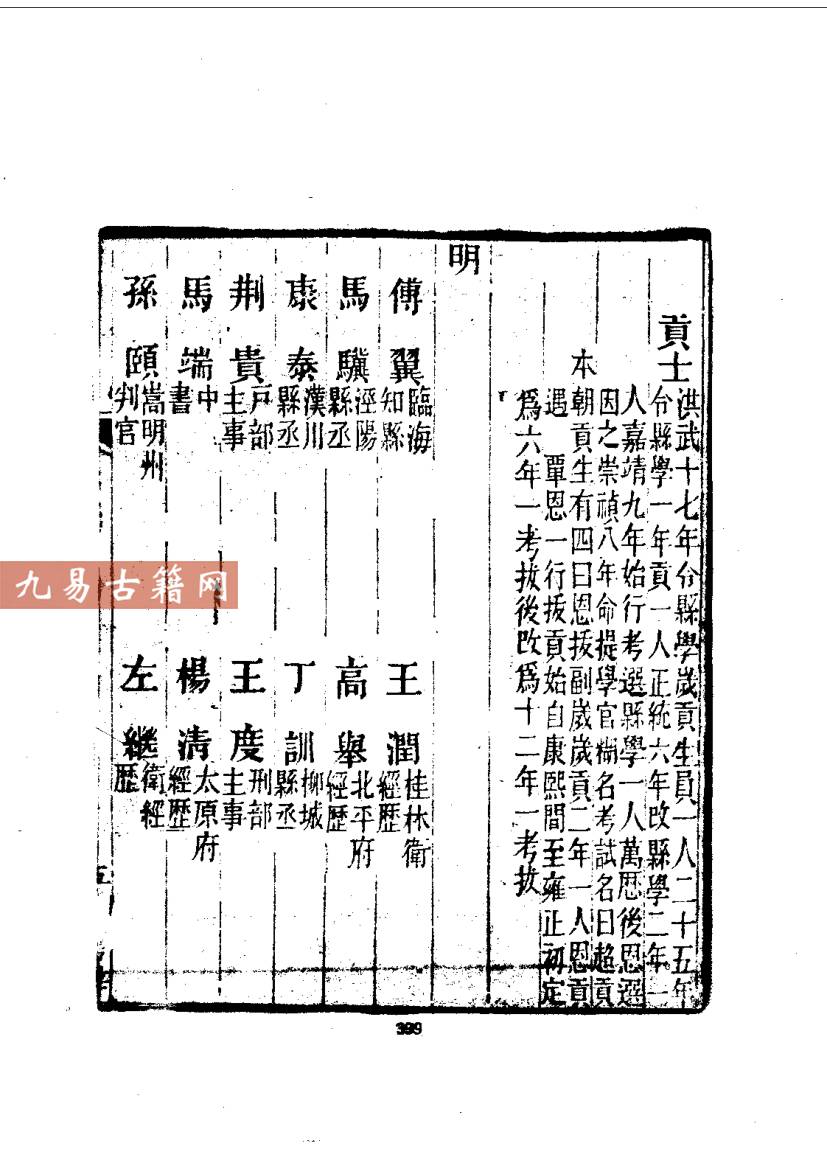 貢士
洪武十七年令縣學歲貢生員一人二十五年
令縣學一年貢一人正統六年改縣學二年一
人嘉靖九年始行考選縣學一人萬歷後恩選
因之崇禎八年命提學官糊名考試名曰超貢
本朝貢生有四曰恩拔副歲歲貢二年一人恩貢
遇 覃恩一行拔貢始自康熙間至雍正初定
為六年一考拔後改為十二年一考拔
明
傅翼 臨海知縣
王潤 桂林衛經歷
馬驥 涇陽縣丞
高舉 北平府經歷
康泰 漢川縣丞
丁訓 柳城縣丞
荆貴 戶部主事
王度 刑部主事
馬端 中書
楊清 太原府經歷
孫頤 嵩明州判官
左繼 衛經歷
五
399
九易古籍网